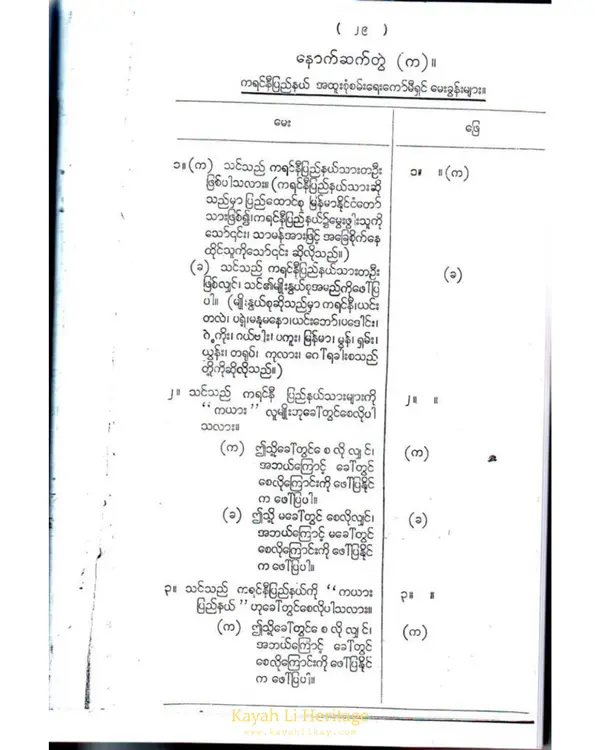 ( ၂၉ )
နောက်ဆက်တွဲ (က)။
ကရင်နီပြည်နယ် အထူးစုံစမ်းရေးကော်မီရှင် မေးခွန်းများ။
မေး
ဖြေ
၁။ (က) သင်သည် ကရင်နီပြည်နယ်သားတဦး
ဖြစ်ပါသလား။ (ကရင်နီပြည်နယ်သားဆို
သည်မှာ ပြည်ထောင်စု မြန်မာနိုင်ငံတော်
သားဖြစ်၍၊ ကရင်နီပြည်နယ်၌မွေးဖွါးသူကို
သော်၎င်း၊ သာမန်အားဖြင့် အခြေစိုက်နေ
ထိုင်သူကိုသော်၎င်း ဆိုလိုသည်။)
၁။ ။ (က)
(ခ) သင်သည် ကရင်နီပြည်နယ်သားတဦး
ဖြစ်လျှင်၊ သင်၏မျိုးနွယ်စုအမည်ကိုဖေါ်ပြ
ပါ။ (မျိုးနွယ်စုဆိုသည်မှာ ကရင်နီ၊ ယင်း
တလဲ၊ ပရဲ့၊ မနုမနော၊ ယင်းဘော်၊ ပဒေါင်း၊
ဂဲ့ကိုး၊ ဂယ်ဗါး၊ ပကူး၊ မြန်မာ၊ မွန်၊ ရှမ်း၊
ယွန်း၊ တရုပ်၊ ကုလား၊ ဂေါ်ရခါးစသည်
တို့ကိုဆိုလိုသည်။)
(ခ)
၂။ သင်သည် ကရင်နီ ပြည်နယ်သားများကို
“ ကယား ” လူမျိုးဟုခေါ်တွင်စေလိုပါ
သလား။
၂။ ။
(က) ဤသို့ခေါ်တွင်စေလိုလျှင်၊
အဘယ်ကြောင့် ခေါ်တွင်
စေလိုကြောင်းကို ဖေါ်ပြနိုင်
က ဖေါ်ပြပါ။
(က)
(ခ) ဤသို့ မခေါ်တွင် စေလိုလျှင်၊
အဘယ်ကြောင့် မခေါ်တွင်
စေလိုကြောင်းကို ဖေါ်ပြနိုင်
က ဖေါ်ပြပါ။
(ခ)
၃။ သင်သည် ကရင်နီပြည်နယ်ကို “ ကယား
ပြည်နယ် ” ဟုခေါ်တွင်စေလိုပါသလား။
၃။ ။
(က) ဤသို့ခေါ်တွင်စေလိုလျှင်၊
အဘယ်ကြောင့် ခေါ်တွင်
စေလိုကြောင်းကို ဖေါ်ပြနိုင်
က ဖေါ်ပြပါ။
(က)
Kayah Li Heritage
www.kayahlikay.com